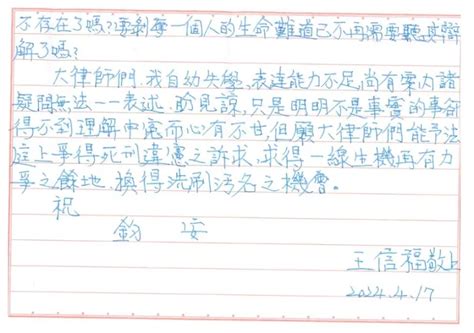 不存在了嗎?要剝奪一個人的生命難道已不再需要聽其辯
解了嗎?
大律師們、我自幼失學、表達能力不足、尚有案內諸
疑問無法一一表述、盼見諒、只是明明不是事實的事卻
得不到理解中處而心有不甘、但願大律師們能予法
庭上爭得死刑違憲之訴求、求得一線生機再有力
爭之餘地、換得洗刷污名之機會。
祝
鈞 安
王信福敬上
2024.4.17